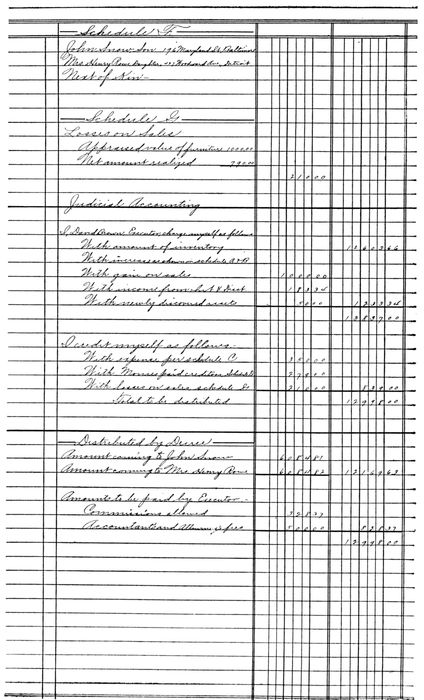 Schedule F
John Snow Son, 196 Maryland St, Baltimore
Mrs Henry Rowe Daughter, Woodward Ave, Detroit
Next of Kin
Schedule G
Losses on Sales
Appraised value of furniture 1000.00
Net amount realized 790.00
210.00
Judicial Accounting
I, David Brown Executor, charge myself as follows
With amount of inventory 12603.66
With increase as shown on schedule A & B
With gain on sales 1000.00
With income from Int & Divd 183.34
With newly discovered assets 50.00 1233.34
13837.00
I credit myself as follows
With expense per schedule C 350.00
With Moneys paid creditors Schedule 279.00
With losses on sales schedule G 210.00 839.00
Total to be distributed 12998.00
Distributed by Decree
Amount coming to John Snow 6084.81
Amount coming to Mrs Henry Rowe 6084.82 12169.63
Amounts to be paid by Executor
Commissions allowed 328.37
Accountant and fees 500.00 828.37
12998.00